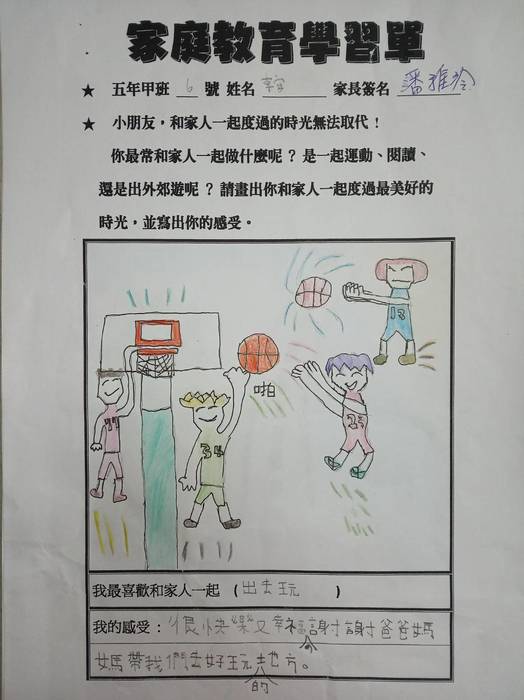 家庭教育學習單
★ 五年甲班 6 號 姓名 家長簽名 潘雅玲
★ 小朋友，和家人一起度過的時光無法取代！
你最常和家人一起做什麼呢？是一起運動、閱讀、
還是出外郊遊呢？請畫出你和家人一起度過最美好的
時光，並寫出你的感受。
13
啪
11
34
23
我最喜歡和家人一起 (出去玩)
我的感受：很快樂又幸福謝謝爸爸媽
媽帶我們去好玩的地方。